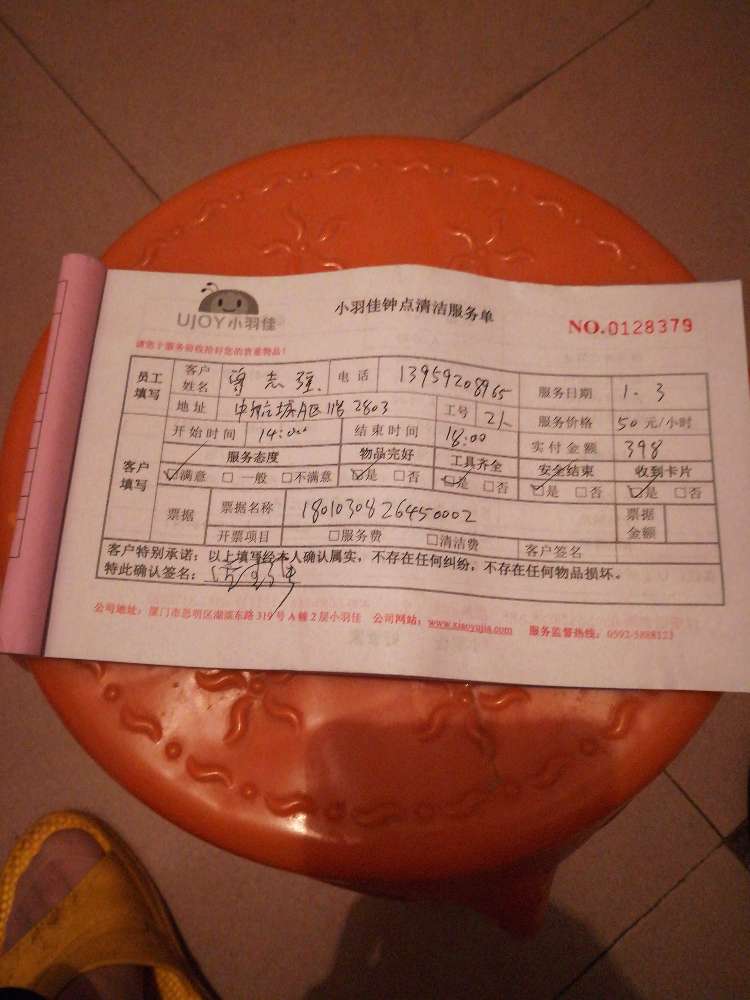 UJOY小羽佳
小羽佳钟点清洁服务单
NO.0128379
请您于服务前收拾好您的贵重物品!
员工填写 客户姓名 曾志强 电话 13959208965 服务日期 1.3
地址 中航城A区11楼2803 工号 服务价格 50元/小时
开始时间 14:00 结束时间 18:00 实付金额 398
客户填写 服务态度 物品完好 工具齐全 安全结束 收到卡片
☑满意 □一般 □不满意 ☑是 □否 ☑是 □否 ☑是 □否 ☑是 □否
票据 票据名称 1801030826450002 票据金额
开票项目 □服务费 □清洁费 客户签名
客户特别承诺:以上填写经本人确认属实,不存在任何纠纷,不存在任何物品损坏。
特此确认签名:
公司地址:厦门市思明区湖滨东路319号A幢2层小羽佳 公司网站:www.xiaoyujia.com 服务监督热线:0592-5888123